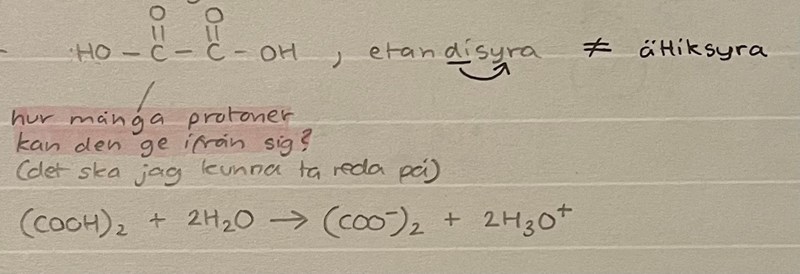 O O
HO – C – C – OH , etandisyra ≠ ättiksyra
hur många protoner
kan den ge ifrån sig?
(det ska jag kunna ta reda på)
(COOH)₂ + 2H₂O → (COO⁻)₂ + 2H₃O⁺